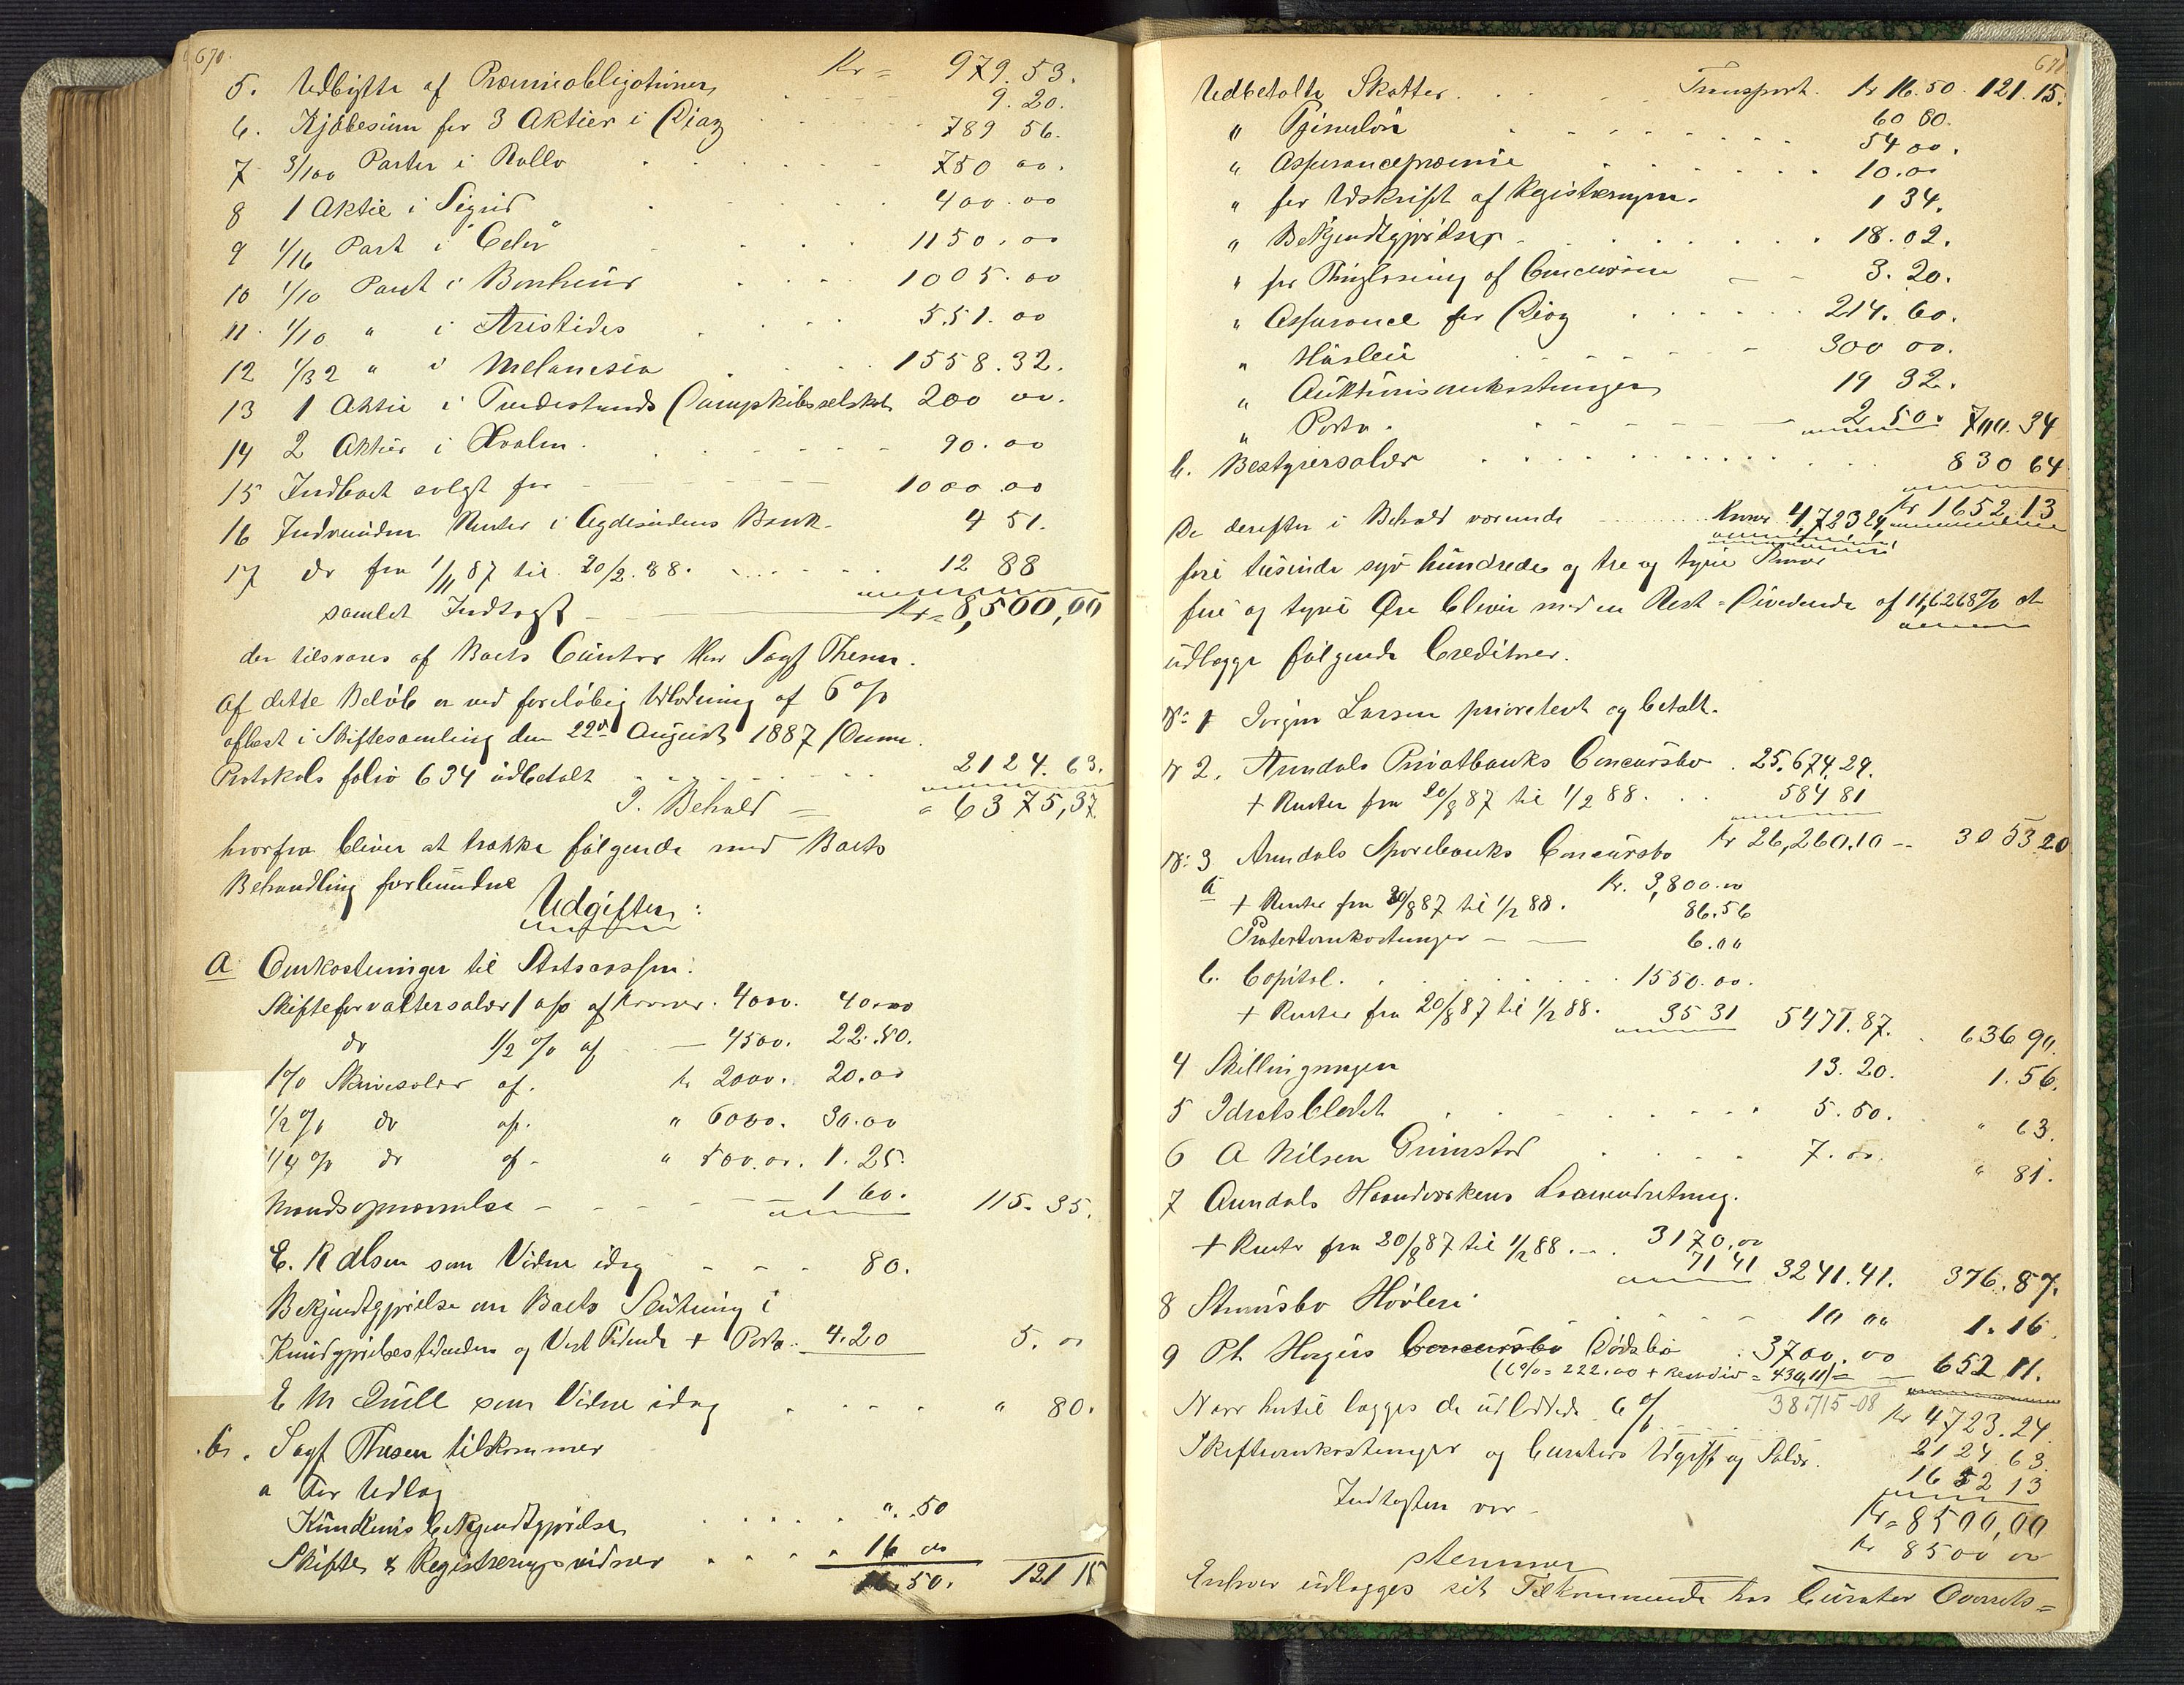 670.
Kr = 979. 53.
5. Udbytte af Præmieobligationer 9. 20.
6. Kjöbesum for 3 Aktier i Diaz 789 56.
7 3/100 Parter i Rollo 750 00.
8 1 Aktie i Sigrid 400.00
9 1/16 Part i "Celer" 1150.00
10 1/10 Part i Bonheur 1005.00
11. 1/10 " i Aristides 551.00
12 1/32 " i Melanesia 1558.32.
13 1 Aktie i Tvedestrands Dampskibsselskab 200 00.
14 2 Aktier i Hvalen. 90.00
15 Indboet solgt for 1000.00
16 Indvundne Renter i Agdesidens Bank. 4 51.
17 do fra 1/11 87 til 20/2. 88. 12 88
samlet Indtægt Kr = 8,500,00
der tilsvares af Boets Curator Herr Sagf Thesen.
Af dette Belöb er ved foreløbig Udlodning af 6 %
afløst i Skiftesamling den 22de August 1887 (Denne
Protokols folio 634 udbetalt 2124. 63.
I. Behold = " 6375,37
hvorfra bliver at trække følgende med Boets
Behandling forbundne
Udgifter:
A Omkostninger til Statscassen:
Skifteforvaltersalær 1 % af Kroner. 4000. 40.00
do 1/2 % af — 4500. 22.50.
1 % Skriversalær af. Kr 2000. 20.00
1/2 % do af. " 6000. 30.00
1/4 % do af — " 500.00. 1.25.
Mandsopnævnelse 1 60. 115. 35.
E. R Olsen som Vidne idag 80.
Bekjendtgjørelse om Boets Slutning i
Kundgjørelsestidenden og Vest Tidende + Porto 4.20 5. 00
E M Quill som Vidne idag " 80.
B. Sagf Thesen tilkommer
a For Udlæg
Kundens bekjendtgjørelse " .50
Skifte & Registreringsvidner " 16 00
16.50. 121 15
671
Transport. Kr 16.50. 121.15.
Udbetalte Skatter 60 80.
" Tjenerløn 54 00.
" Assurancepræmie 10.00
" for Udskrift af Registreringen. 1 34.
" Bekjendtgjørelser 18.02.
" for Thinglæsning af Concursen 3. 20.
" Assurance for Diaz 214. 60.
" Husleie 300 00.
" Auktionsomkostninger 19 32.
" Porto. 2 50. 700. 34
b. Bestyrersalær 830 64
Kr 1652 13
De derefter i Behold værende Kroner 4,723 24,
fire tusinde syv hundrede og tre og tyve Kroner
fire og tyve Øre bliver med en Rest = Dividende af 11,6268 % at
udlægge følgende Creditorer.
No 1 Jørgen Larsen prioriteret og betalt.
No 2. Arendals Privatbanks Concursbo 25,674,29.
+ Renter fra 20/8 87 til 1/2 88. 584 81
Kr 26,260.10 — 3053 20
No 3 Arendals Sparebanks Concursbo
a Kr. 3,800.00
+ Renter fra 20/8 87 til 1/2 88. 86.56
Protestomkostninger 6.00
b. Capital. 1550.00.
+ Renter fra 20/8 87 til 1/2 88. 35 31 5477.87. 636 90.
4 Skillingsmagen 13. 20. 1. 56.
5 Idrætsbladet 5. 50. " 63.
6 A Nilsen Grimstad 7. 00. " 81.
7 Arendals Haandværkeres Laaneindretning.
3170,00
+ Rente fra 20/8 87 til 1/2 88. 71 41 3241.41. 376. 87.
8 Strømsbo Høvleri 10 00 1. 16.
9 Ph Herges Concursbo Dødsbo 3700.00
(6% = 222.00 + Restdiv = 430,11) = 652 11.
38.715-08 Kr 4723. 24.
Naar hertil lægges de udloddede 6 % 2124 63
Skifteomkostninger og Curators Udgift og Salær. 1652 13
Kr = 8500,00
Indtægten var. Kr 8500 00
stemmer
Enhver udlægges sit Tilkommende hos Curator Overrets=